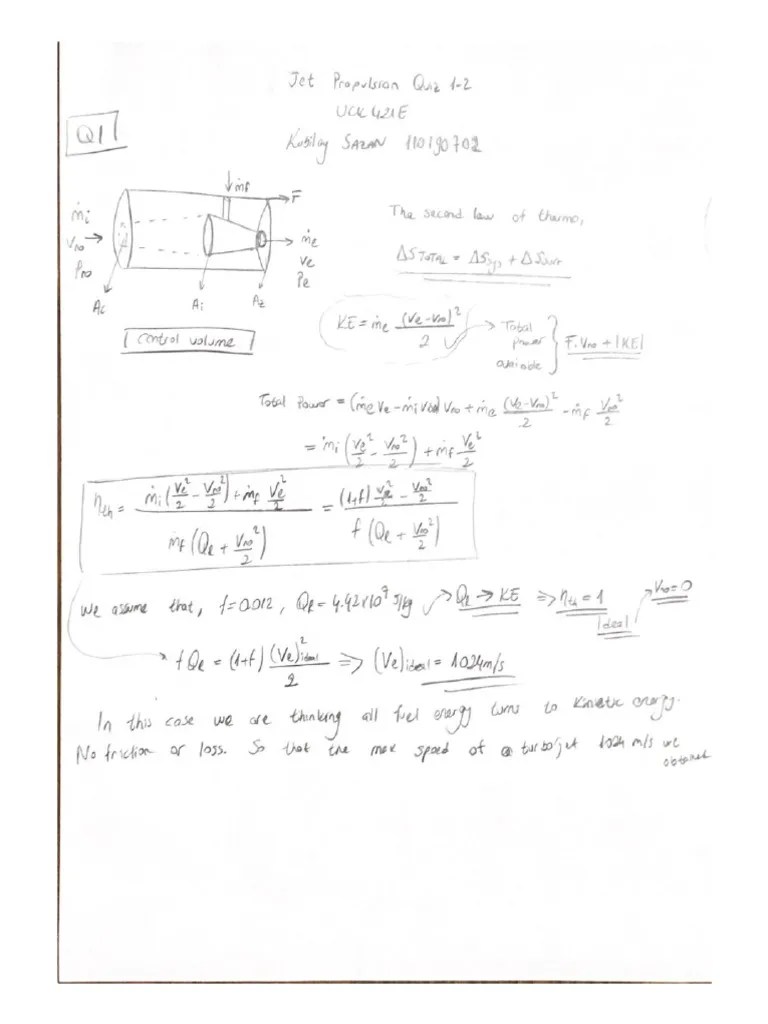 Jet Propulsion Quiz 1-2
UCK421E
Kubilay SAZAN 110190702
Q1
ṁf
F
ṁi
V∞
P∞
ṁe
Ve
Pe
Ac
Ai
A2
control volume
The second law of thermo,
ΔSTOTAL = ΔSsys + ΔSsurr
KE = ṁe (Ve-V∞)²/2 → Total power available } F.V∞ + |KE|
Total Power = (ṁe Ve - ṁi V∞) V∞ + ṁe (Ve-V∞)²/2 - ṁf V∞²/2
= ṁi (Ve²/2 - V∞²/2) + ṁf Ve²/2
ηth = ṁi (Ve²/2 - V∞²/2) + ṁf Ve²/2 / ṁf (QR + V∞²/2) = (1+f) Ve²/2 - V∞²/2 / f (QR + V∞²/2)
We assume that, f=0.012, QR = 4.42x10⁷ J/kg → QR → KE ⇒ ηth = 1 Ideal → V∞=0
f QR = (1+f) (Ve)²ideal/2 ⇒ (Ve)ideal = 1024m/s
In this case we are thinking all fuel energy turns to kinetic energy.
No friction or loss. So that the max speed of a turbojet 1024 m/s we obtained